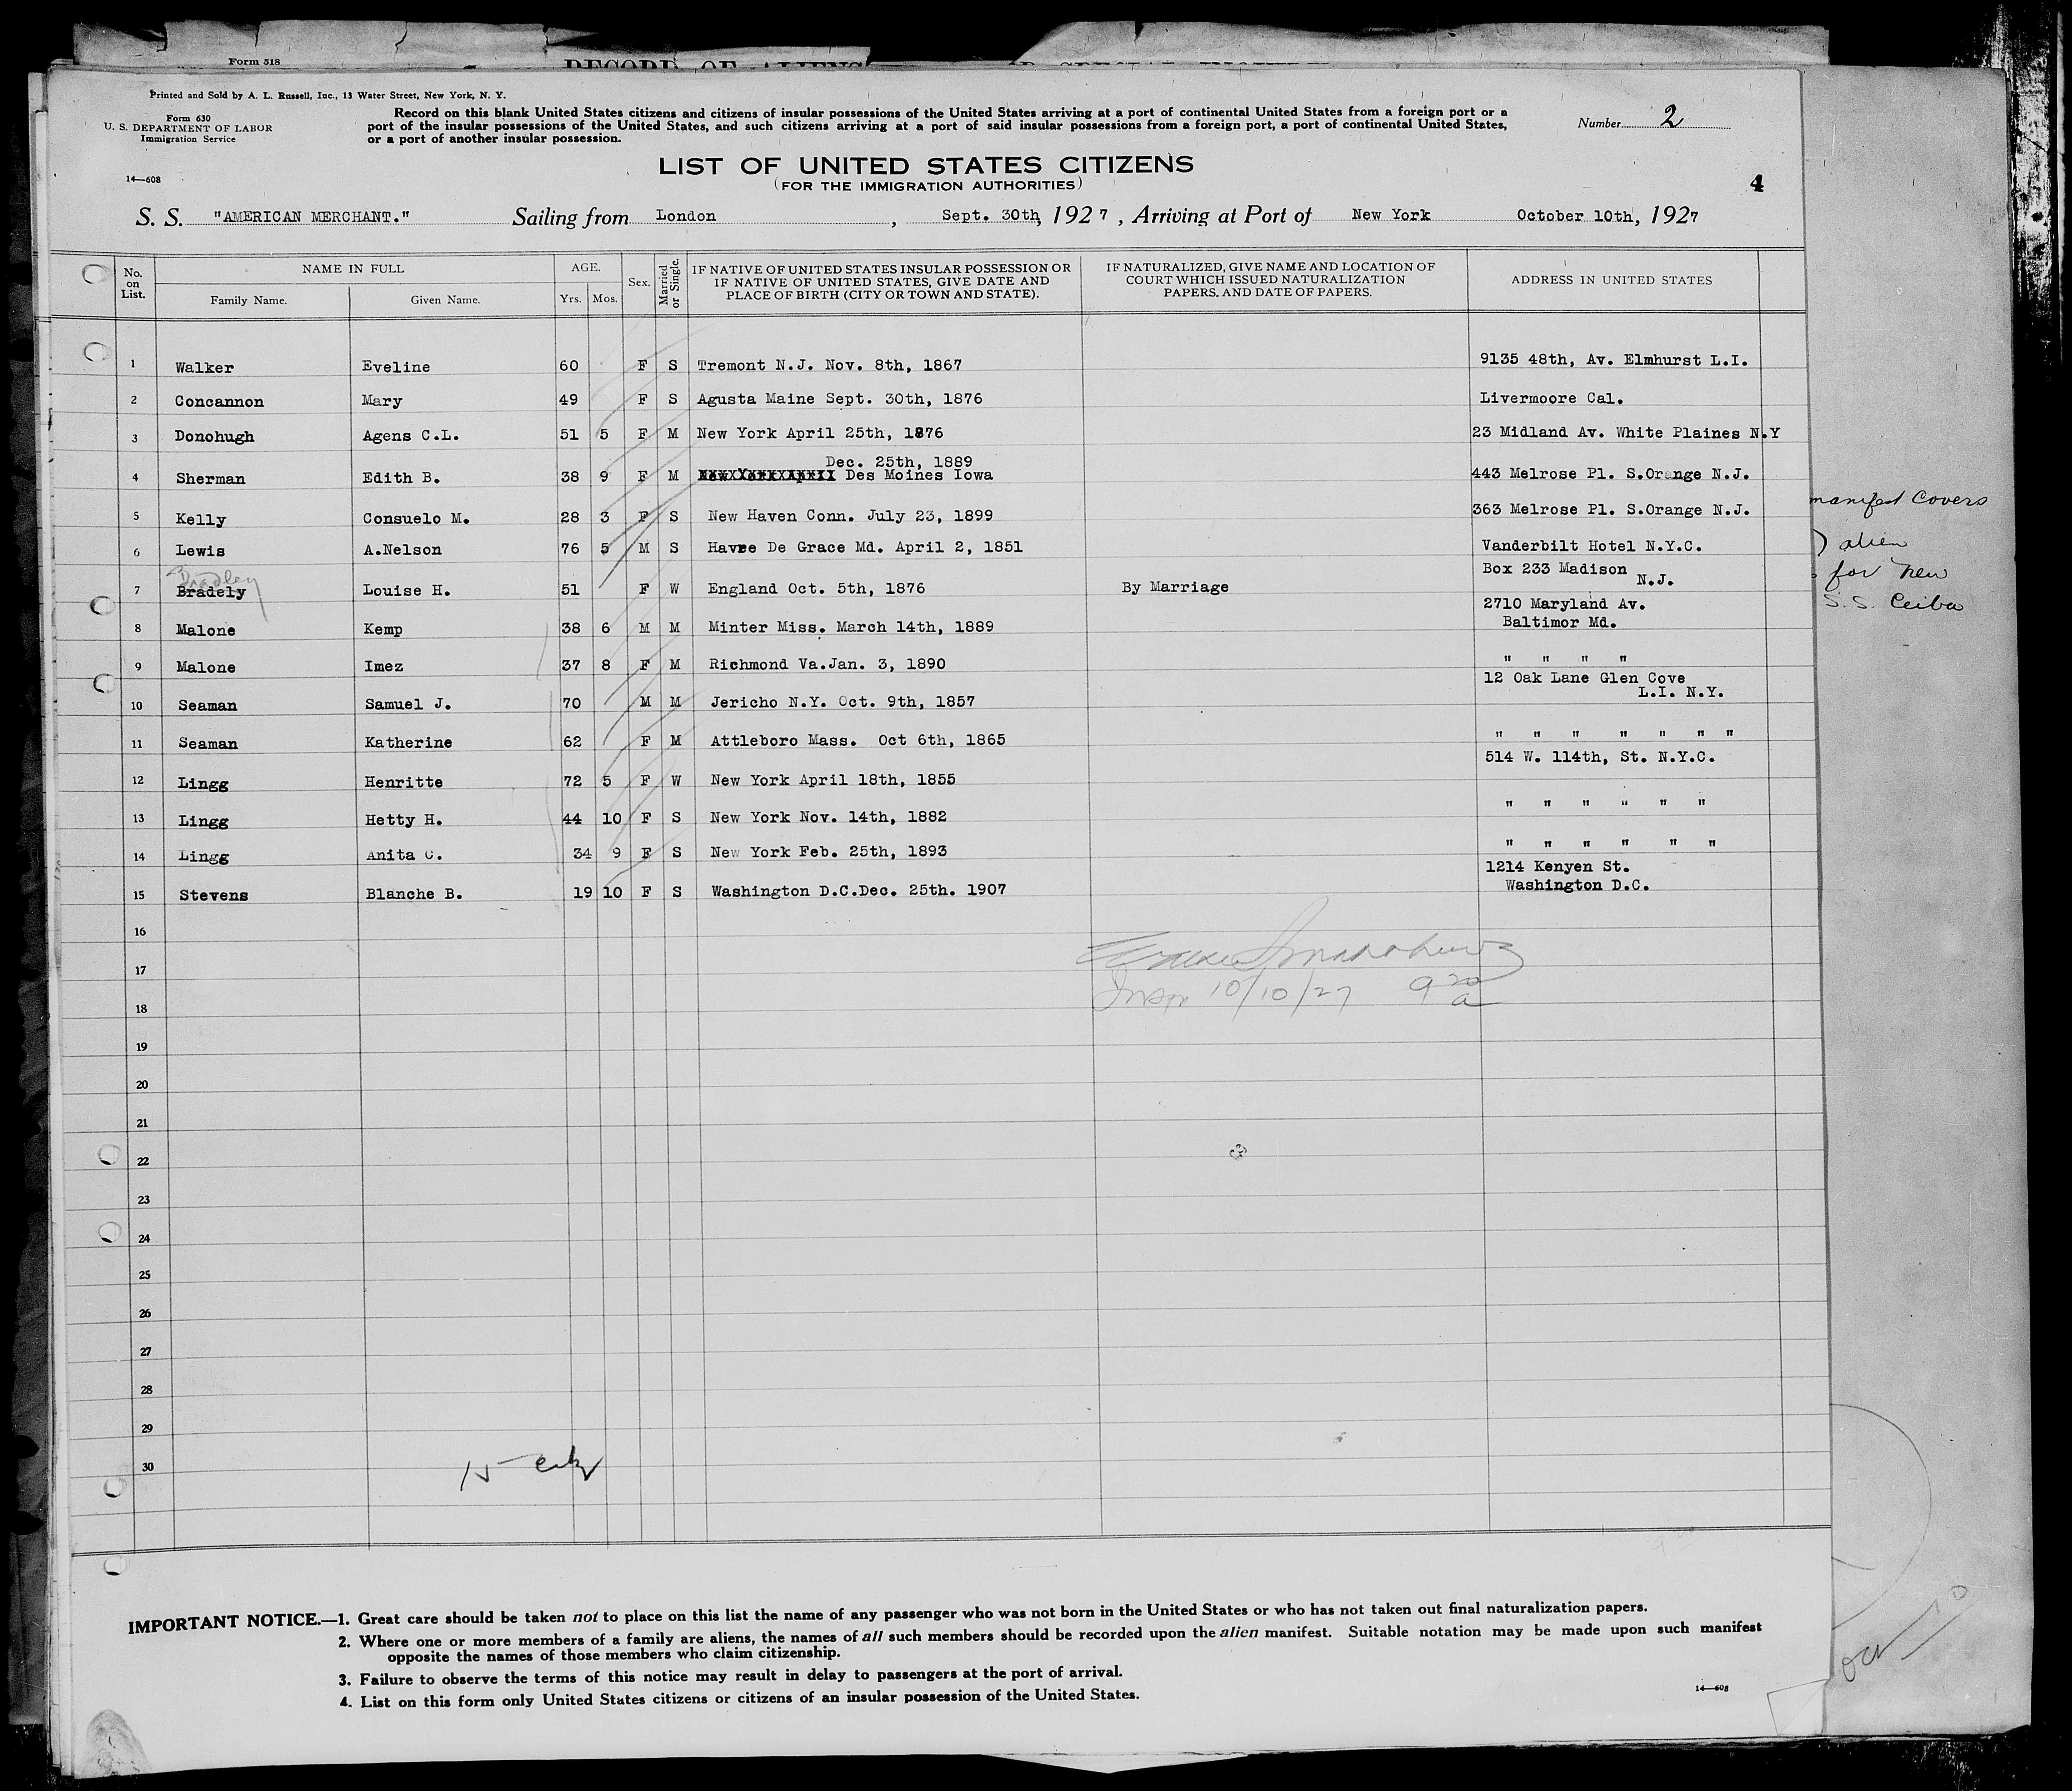 Form 518
RECORD OF ALIENS
Printed and Sold by A. L. Russell, Inc., 13 Water Street, New York, N. Y.
Form 630
U. S. DEPARTMENT OF LABOR
Immigration Service
14—608
Record on this blank United States citizens and citizens of insular possessions of the United States arriving at a port of continental United States from a foreign port or a
port of the insular possessions of the United States, and such citizens arriving at a port of said insular possessions from a foreign port, a port of continental United States,
or a port of another insular possession.
Number 2
LIST OF UNITED STATES CITIZENS
(FOR THE IMMIGRATION AUTHORITIES)
4
S. S. "AMERICAN MERCHANT." Sailing from London, Sept. 30th, 1927, Arriving at Port of New York October 10th, 1927
No. on List. NAME IN FULL AGE. Sex. Married or Single. IF NATIVE OF UNITED STATES INSULAR POSSESSION OR IF NATIVE OF UNITED STATES, GIVE DATE AND PLACE OF BIRTH (CITY OR TOWN AND STATE). IF NATURALIZED, GIVE NAME AND LOCATION OF COURT WHICH ISSUED NATURALIZATION PAPERS, AND DATE OF PAPERS. ADDRESS IN UNITED STATES
Family Name. Given Name. Yrs. Mos.
1 Walker Eveline 60 F S Tremont N.J. Nov. 8th, 1867 9135 48th, Av. Elmhurst L.I.
2 Concannon Mary 49 F S Agusta Maine Sept. 30th, 1876 Livermoore Cal.
3 Donohugh Agens C.L. 51 5 F M New York April 25th, 1876 23 Midland Av. White Plaines N.Y
Dec. 25th, 1889
4 Sherman Edith B. 38 9 F M Des Moines Iowa 443 Melrose Pl. S.Orange N.J.
5 Kelly Consuelo M. 28 3 F S New Haven Conn. July 23, 1899 363 Melrose Pl. S.Orange N.J.
6 Lewis A.Nelson 76 5 M S Havre De Grace Md. April 2, 1851 Vanderbilt Hotel N.Y.C.
Bradley
7 Bradely Louise H. 51 F W England Oct. 5th, 1876 By Marriage Box 233 Madison N.J.
8 Malone Kemp 38 6 M M Minter Miss. March 14th, 1889 2710 Maryland Av. Baltimor Md.
9 Malone Imez 37 8 F M Richmond Va.Jan. 3, 1890 " " " "
10 Seaman Samuel J. 70 M M Jericho N.Y. Oct. 9th, 1857 12 Oak Lane Glen Cove L.I. N.Y.
11 Seaman Katherine 62 F M Attleboro Mass. Oct 6th, 1865 " " " " " " "
12 Lingg Henritte 72 5 F W New York April 18th, 1855 514 W. 114th, St. N.Y.C.
13 Lingg Hetty H. 44 10 F S New York Nov. 14th, 1882 " " " " " "
14 Lingg Anita C. 34 9 F S New York Feb. 25th, 1893 " " " " " "
15 Stevens Blanche B. 19 10 F S Washington D.C.Dec. 25th. 1907 1214 Kenyen St. Washington D.C.
16
17
Insp 10/10/27 9 20 a
18
19
20
21
22
23
24
25
26
27
28
29
30
15
manifest covers
alien
for new
S.S. Ceiba
IMPORTANT NOTICE.—1. Great care should be taken not to place on this list the name of any passenger who was not born in the United States or who has not taken out final naturalization papers.
2. Where one or more members of a family are aliens, the names of all such members should be recorded upon the alien manifest. Suitable notation may be made upon such manifest
opposite the names of those members who claim citizenship.
3. Failure to observe the terms of this notice may result in delay to passengers at the port of arrival.
4. List on this form only United States citizens or citizens of an insular possession of the United States.
14—608